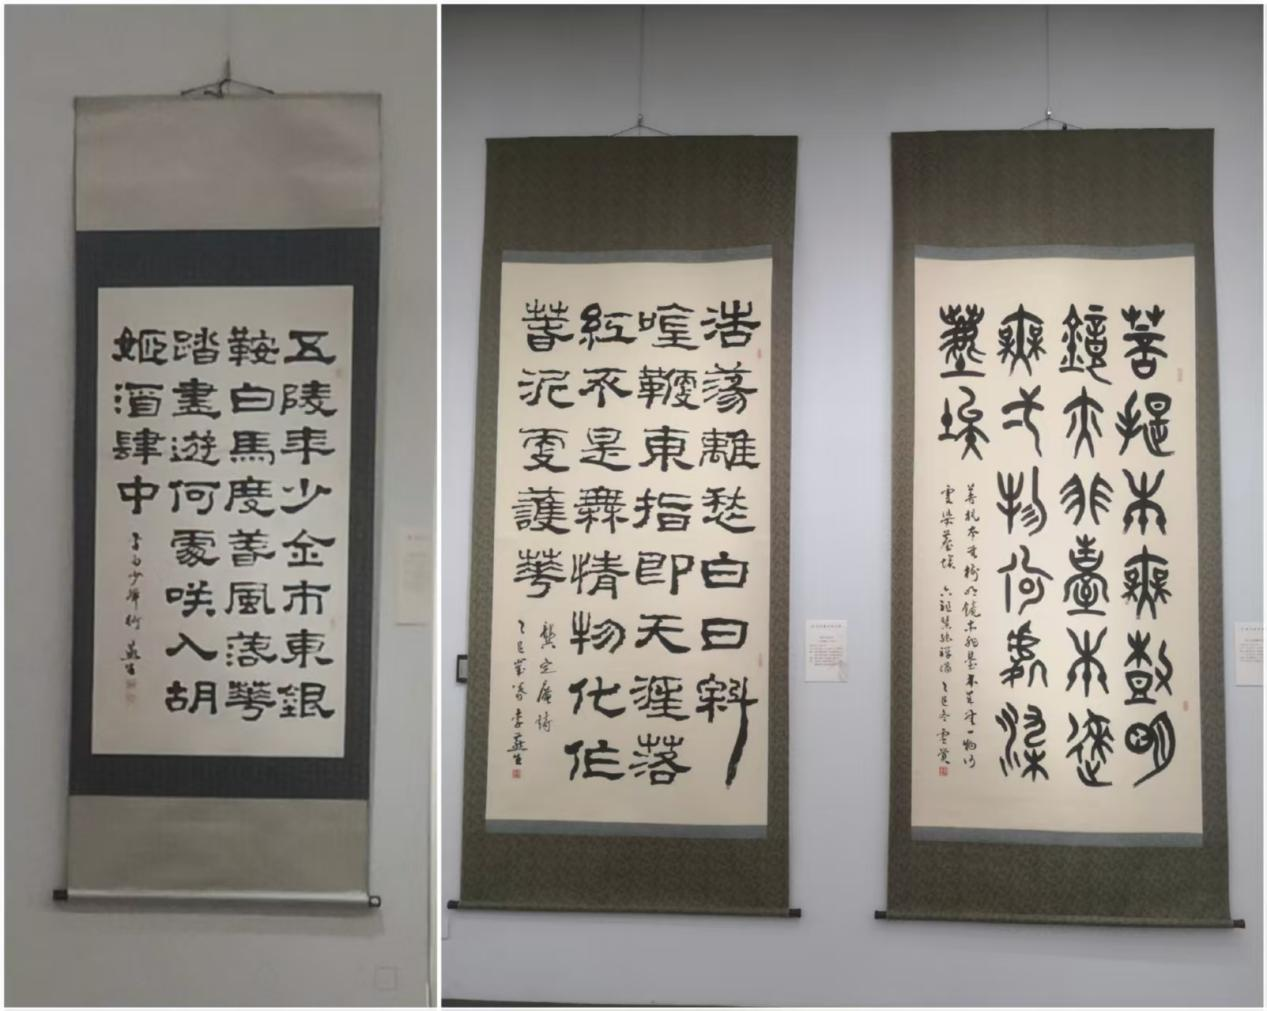 五陵年少金市東銀
鞍白馬度春風落華
踏盡遊何處咲入胡
姬酒肆中
李白少年行 蘇生
浩蕩離愁白日斜
唫鞭東指即天涯落
紅不是無情物化作
春泥更護華
龔定庵詩
乙巳歲 李蘇生
菩提本無樹明
鏡亦非臺本來
無弌物何處染
塵埃
菩提本無樹明鏡亦非臺本來無一物何
處染塵埃 六祖慧能禪偈 乙巳冬